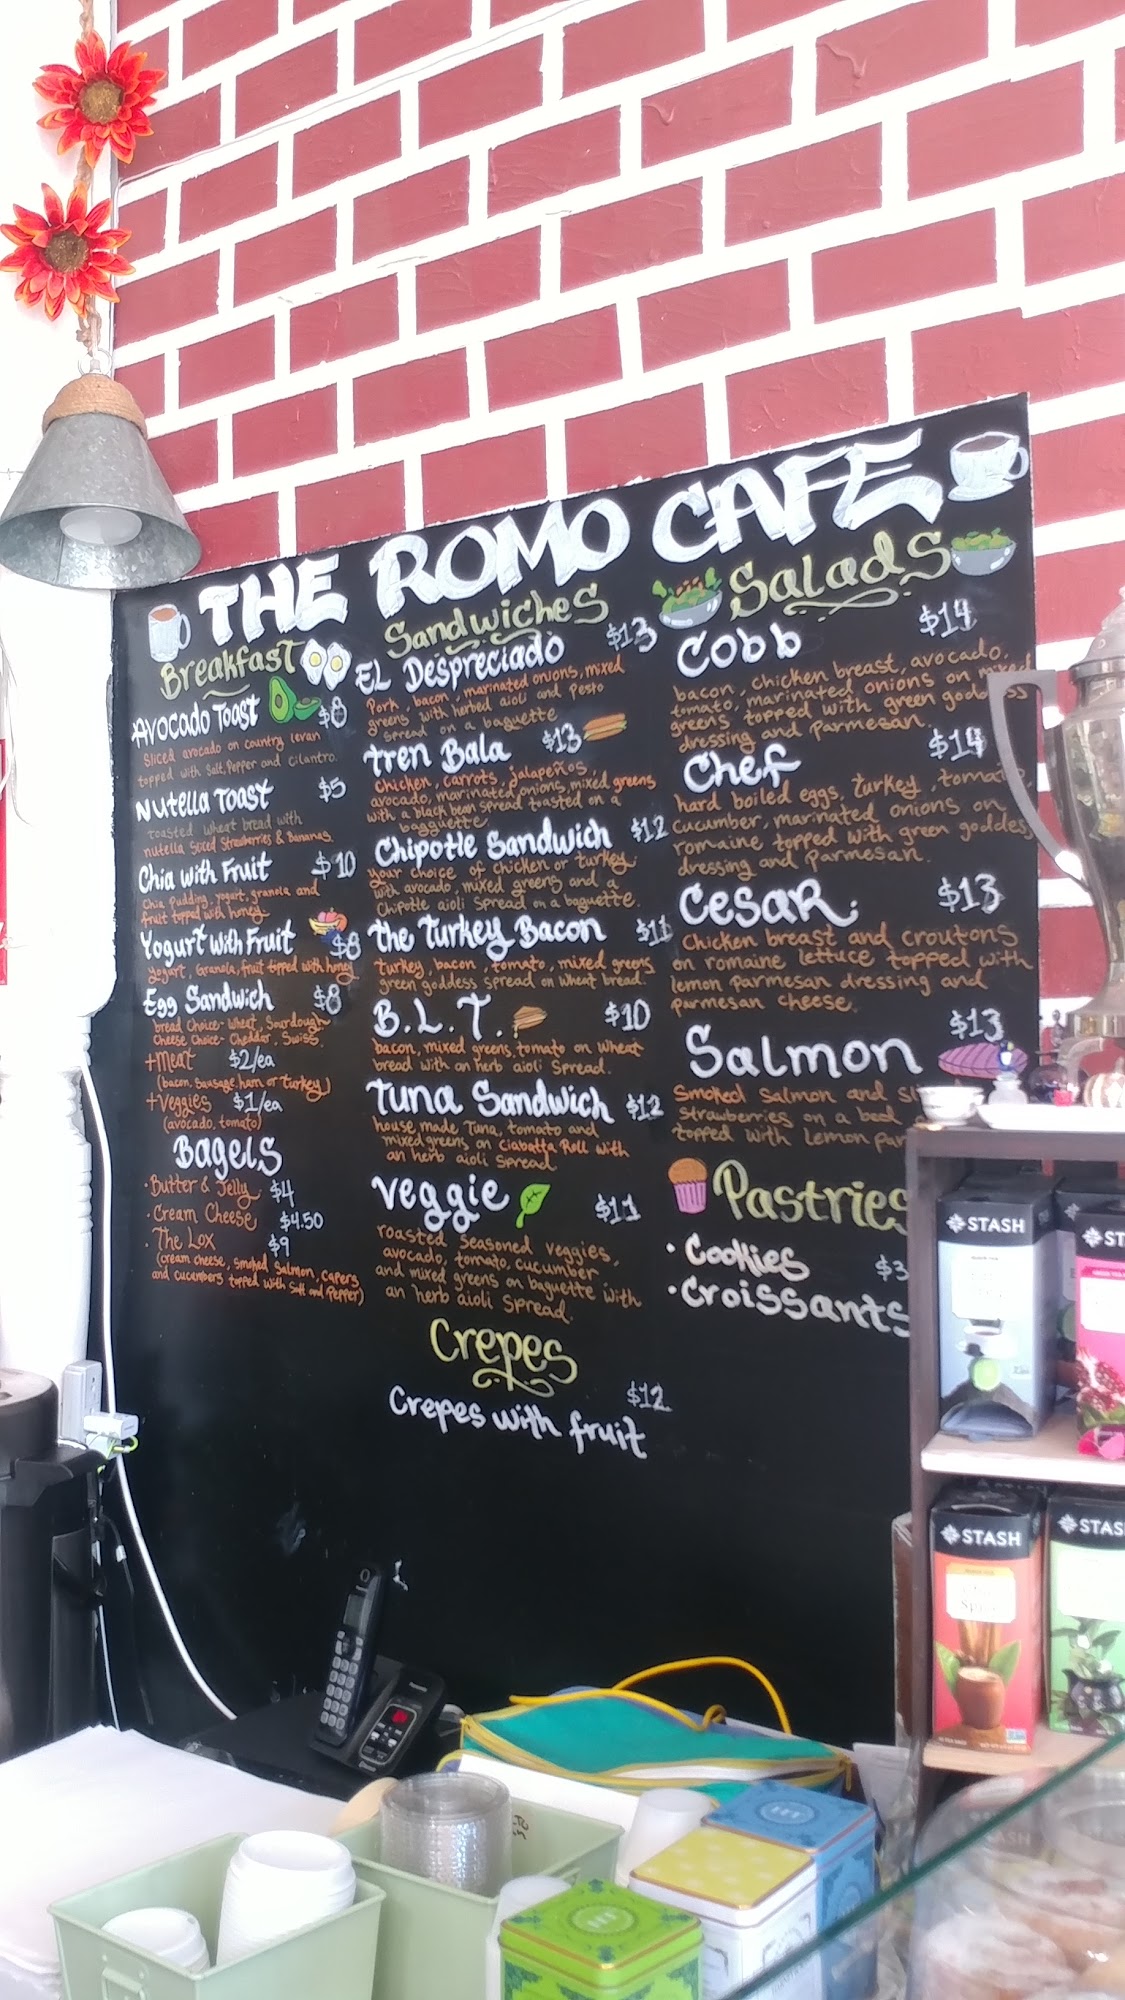 THE ROMO CAFE
Breakfast
Avocado Toast $8
Sliced avocado on country levan
topped with Salt, Pepper and Cilantro.
Nutella Toast $5
toasted wheat bread with
nutella Sliced Strawberries & Bananas
Chia with Fruit $10
Chia Pudding, yogurt, granola and
fruit topped with honey
Yogurt with Fruit $8
Yogurt, Granola, fruit topped with honey
Egg Sandwich $8
bread Choice- Wheat, Sourdough
Cheese Choice- Cheddar, Swiss
+Meat $2/ea
(bacon, Sausage, ham or turkey)
+Veggies $1/ea
(avocado, tomato)
Bagels
· Butter & Jelly $4
· Cream Cheese $4.50
· The Lox $9
(cream cheese, smoked Salmon, capers
and cucumbers topped with Salt and Pepper)
Sandwiches
El Despreciado $13
Pork, bacon, marinated onions, mixed
greens with herbed aioli and Pesto
Spread on a baguette
Tren Bala $13
Chicken, carrots, jalapeños,
avocado, marinated onions, mixed greens
with a black bean spread toasted on a
bagguette
Chipotle Sandwich $12
your choice of chicken or turkey
with avocado, mixed greens and a
Chipotle aioli Spread on a baguette.
The Turkey Bacon $11
turkey, bacon, tomato, mixed greens
green goddess spread on wheat bread.
B.L.T. $10
bacon, mixed greens, tomato on wheat
bread with an herb aioli Spread.
Tuna Sandwich $12
house made Tuna, tomato and
mixed greens on Ciabatta Roll with
an herb aioli spread
Veggie $11
roasted seasoned veggies,
avocado, tomato, cucumber
and mixed greens on baguette with
an herb aioli Spread.
Crepes
Crepes with fruit $12
Salads
Cobb $14
bacon, chicken breast, avocado,
tomato, marinated onions on mixed
greens topped with green goddess
dressing and Parmesan.
Chef $14
hard boiled eggs, turkey, tomato,
cucumber, marinated onions on
romaine topped with green goddess
dressing and Parmesan.
Cesar. $13
Chicken breast and croutons
on romaine lettuce topped with
lemon parmesan dressing and
parmesan cheese.
Salmon $13
Smoked Salmon and
Strawberries on a bed
topped with Lemon
Pastries
· Cookies $3
· Croissants
STASH
ST
STASH
STAS